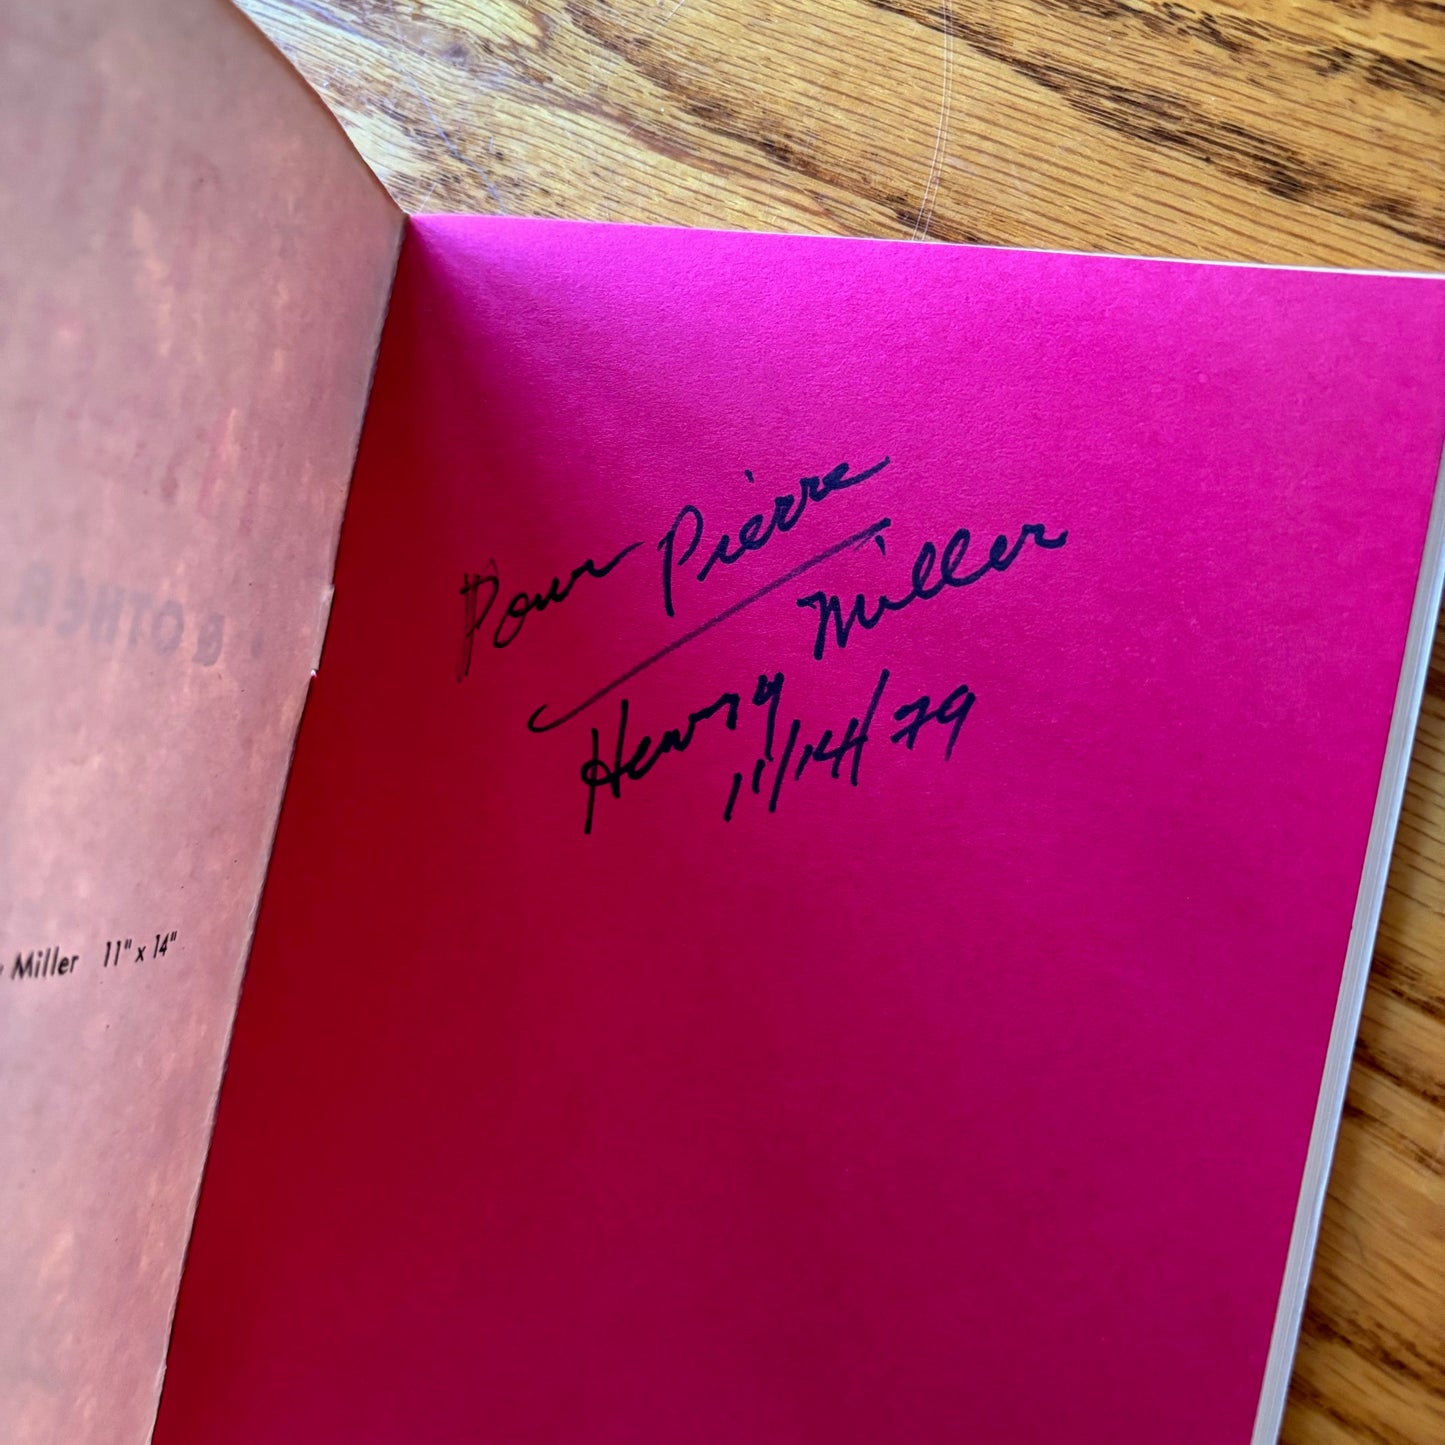 Pour Pierre
Henry Miller
11/14/79
Miller 11" x 14"